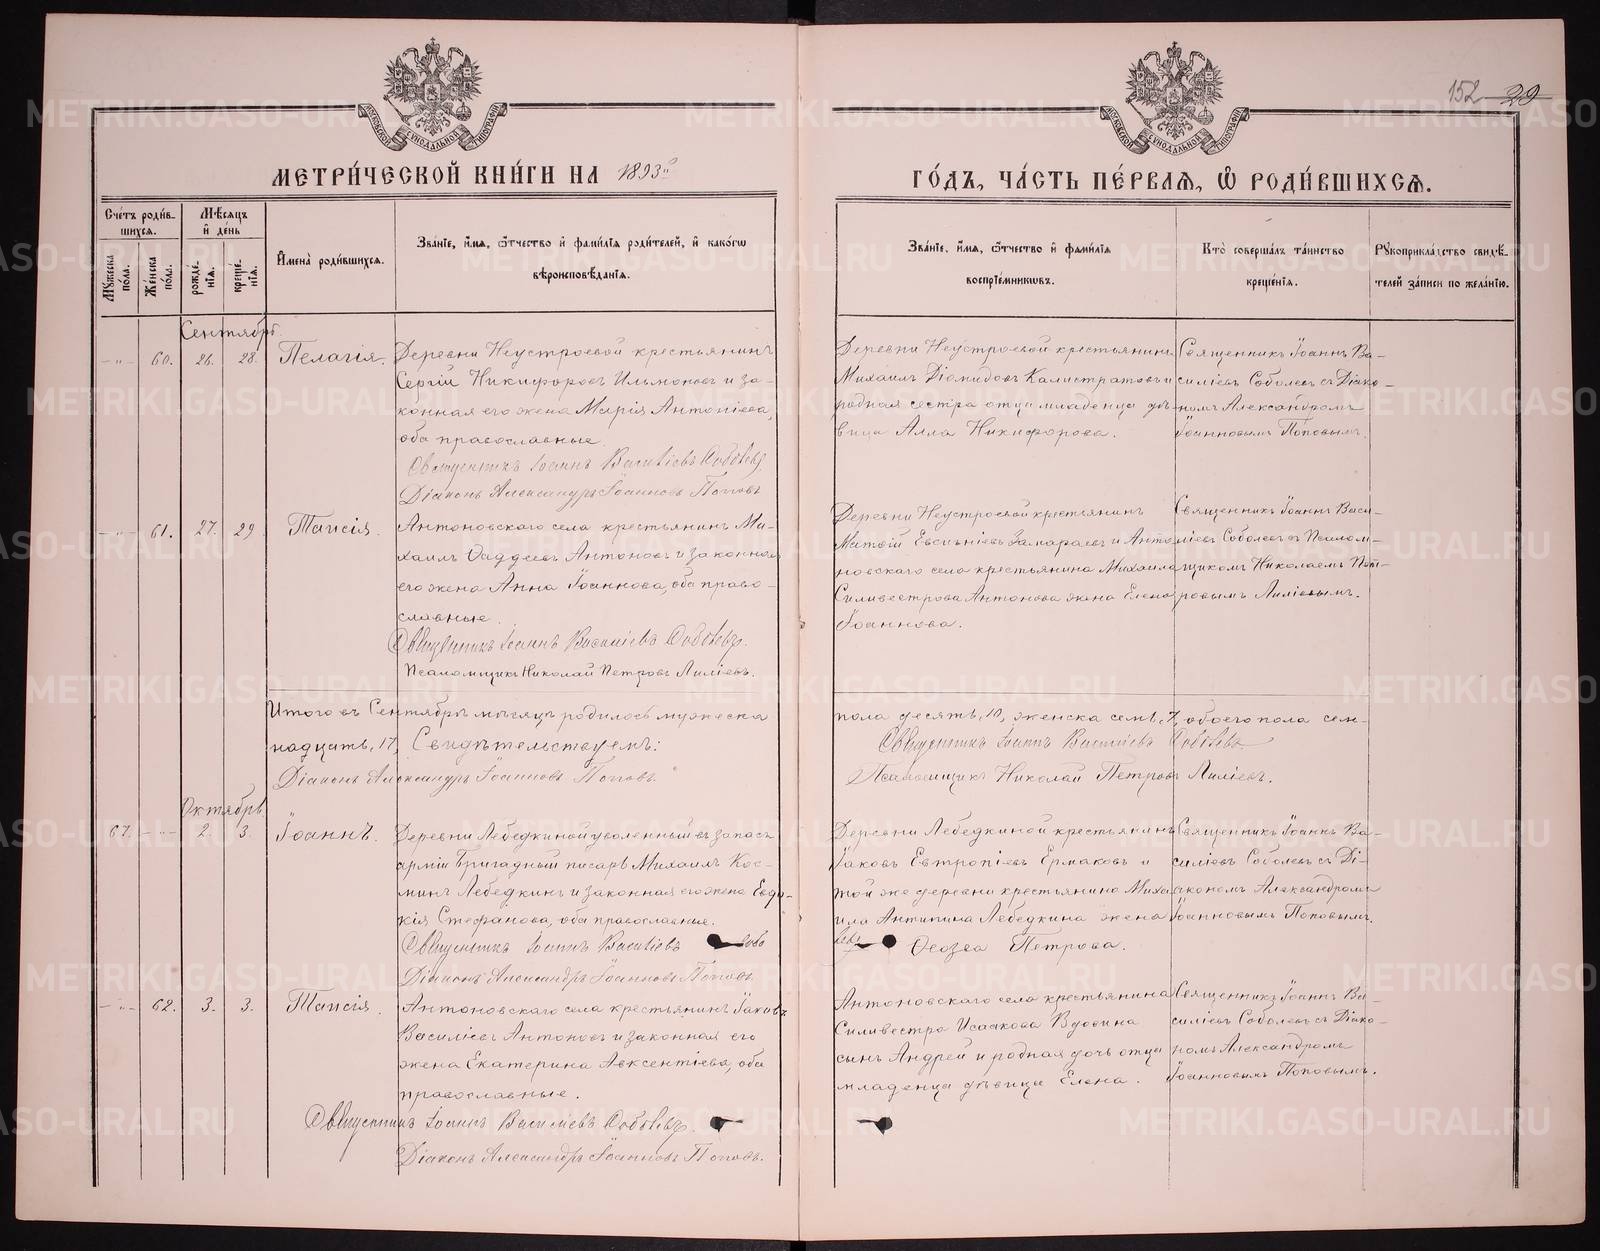 152 29
МОСКОВСКОЙ СѴНОДАЛЬНОЙ ТИПОГРАФІИ
МОСКОВСКОЙ СѴНОДАЛЬНОЙ ТИПОГРАФІИ
МЕТРИ́ЧЕСКОЙ КНИ́ГИ НА 1893й
ГО́ДЪ, ЧА́СТЬ ПЕ́РВАЯ, Ѽ РОДИ́ВШИХСЯ.
Сче́тъ роди́в-
шихся.
Мꙋжеска по́ла.
Же́нска по́ла.
Мѣ́сяцъ
и҆ де́нь
рожде́-
нїя.
креще́-
нїя.
И҆мена̀ роди́вшихся.
Зва́нїе, и҆́мя, ѻ҆́тчество и҆ фами́лїя роди́телей, и҆ како́гѡ
вѣроисповѣ́данїя.
Зва́нїе, и҆́мя, ѻ҆́тчество и҆ фами́лїя
воспрїе́мникѡвъ.
Кто̀ соверша́лъ та́инство
креще́нїя.
Рꙋкоприкла́дство свидѣ́-
телей за́писи по жела́нїю.
Сентябрь.
-"- 60. 26. 28. Пелагія.
Деревни Неустроевой крестьянинъ
Сергій Никифоровъ Ильмоновъ и за-
конная его жена Марія Антоніева,
оба православные.
Священникъ Іоаннъ Василіевъ Соболевъ.
Діаконъ Александръ Іоанновъ Поповъ
Деревни Неустроевой крестьянинъ
Михаилъ Діомидовъ Калистратовъ и
родная сестра отца младенца дѣ-
вица Алла Никифорова.
Священникъ Іоаннъ Ва-
силіевъ Соболевъ съ Діако-
номъ Александромъ
Іоанновымъ Поповымъ.
-"- 61. 27. 29. Таисія.
Антоновскаго села крестьянинъ Ми-
хаилъ Ѳаддеевъ Антоновъ и законная
его жена Анна Іоаннова, оба право-
славные.
Священникъ Іоаннъ Василіевъ Соболевъ.
Псаломщикъ Николай Петровъ Лиліевъ.
Деревни Неустроевой крестьянинъ
Матѳій Евсиѳіевъ Замараевъ и Анто-
новскаго села крестьянина Михаила
Сильвестрова Антонова жена Елена
Іоаннова.
Священникъ Іоаннъ Васи-
ліевъ Соболевъ съ Псалом-
щикомъ Николаемъ Пет-
ровымъ Лиліевымъ.
Итого въ Сентябрѣ мѣсяцѣ родилось мужеска
пола десять, 10, женска семь, 7, обоего пола сем-
надцать, 17, Свидѣтельствуемъ:
Священникъ Іоаннъ Василіевъ Соболевъ
Діаконъ Александръ Іоанновъ Поповъ.
Псаломщикъ Николай Петровъ Лиліевъ.
Октябрь
67. -"- 2. 3. Іоаннъ.
Деревни Лебедкиной уволенный въ запасъ
арміи бригадный писарь Михаилъ Кос-
минъ Лебедкинъ и законная его жена Евдо-
кія Стефанова, оба православные.
Священникъ Іоаннъ Василіевъ Собо
левъ
Діаконъ Александръ Іоанновъ Поповъ.
Деревни Лебедкиной крестьянинъ
Іаковъ Евтропіевъ Ермаковъ и
той же деревни крестьянина Миха-
ила Антипина Лебедкина жена
Ѳеозва Петрова.
Священникъ Іоаннъ Ва-
силіевъ Соболевъ съ Ді-
акономъ Александромъ
Іоанновымъ Поповымъ.
-"- 62. 3. 3. Таисія.
Антоновскаго села крестьянинъ Іаковъ
Василіевъ Антоновъ и законная его
жена Екатерина Авксентіева, оба
православные.
Священникъ Іоаннъ Василіевъ Соболевъ.
Діаконъ Александръ Іоанновъ Поповъ.
Антоновскаго села крестьянина
Сильвестра Исаакова Вдовина
сынъ Андрей и родная дочь отца
младенца дѣвица Елена.
Священникъ Іоаннъ Ва-
силіевъ Соболевъ съ Діако-
номъ Александромъ
Іоанновымъ Поповымъ.
METRIKI.GASO-URAL.RU